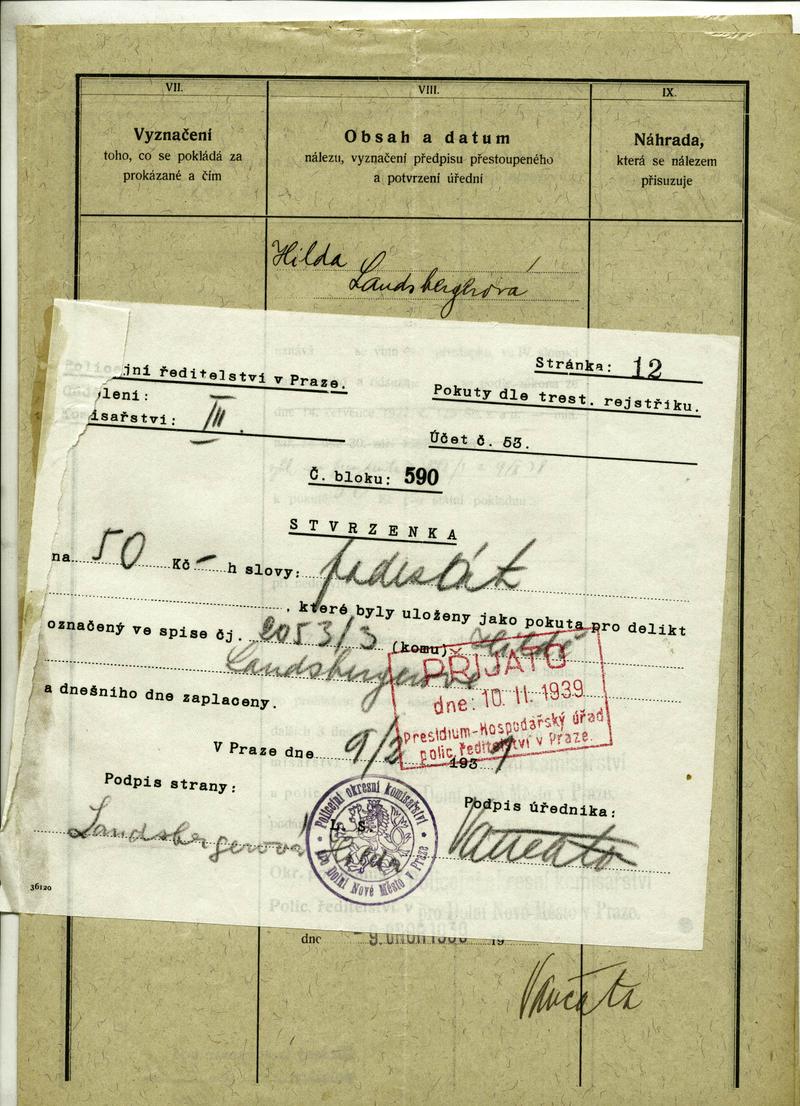 VII.
VIII.
IX.
Vyznačení
toho, co se pokládá za
prokázané a čím
Obsah a datum
nálezu, vyznačení předpisu přestoupeného
a potvrzení úřední
Náhrada,
která se nálezem
přisuzuje
Hilda
Landsbergerová
jní ředitelství v Praze.
lení:
isařství: III.
Stránka: 12
Pokuty dle trest. rejstříku.
Účet č. 53.
Č. bloku: 590
STVRZENKA
na 50 Kč – h slovy: padesát
, které byly uloženy jako pokuta pro delikt
označený ve spise čj. 2053/3 (komu) Hildě
Landsbergerové
a dnešního dne zaplaceny.
PŘIJATO
dne: 10. II. 1939
Presidium-Hospodářský úřad
polic. ředitelství v Praze.
V Praze dne 9/2 1939
Podpis strany:
Podpis úředníka:
Landsbergerová Hilda
Policejní okresní komisařství
pro Dolní Nové Město v Praze
L. S.
Vančata
36120
dne - 9. ÚNOR 1939 19
Vančata